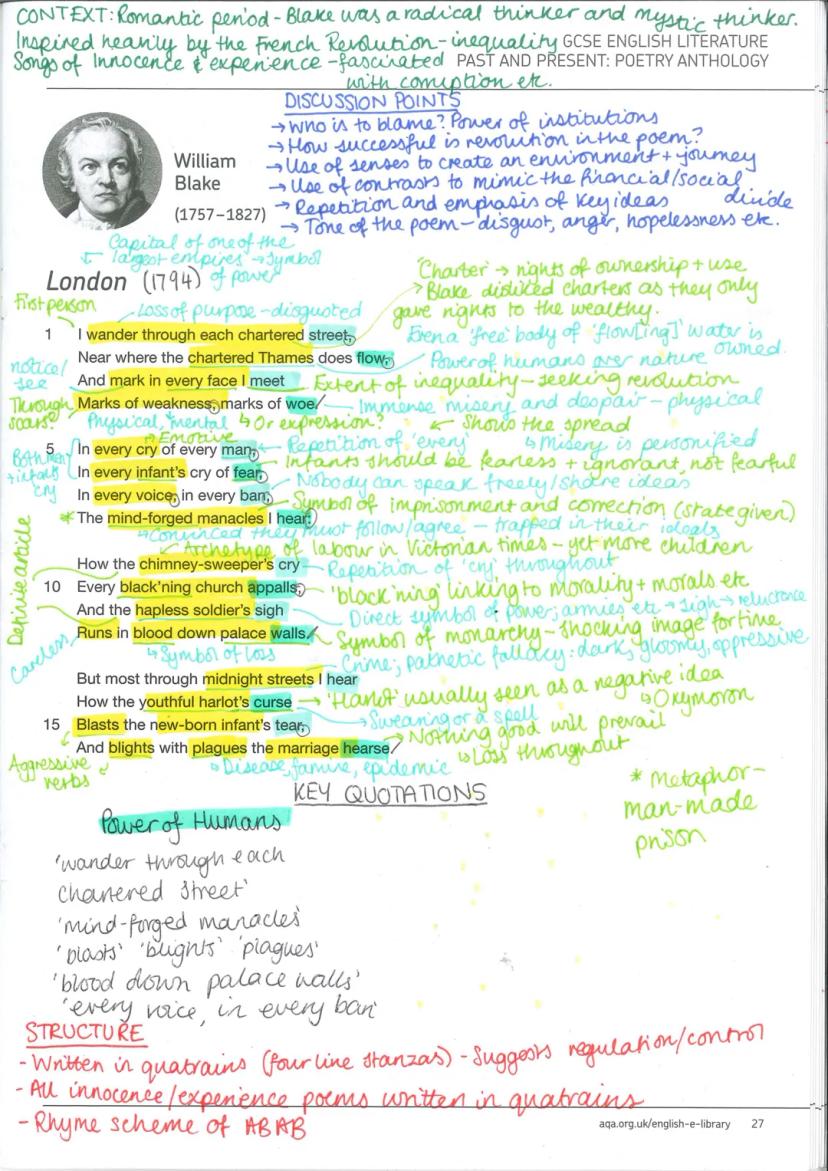 CONTEXT: Romantic period - Blake was a radical thinker and mystic thinker.
Inspired heavily by the French Revolution - inequality
GCSE ENGLISH LITERATURE
Songs of Innocence & experience - fascinated
PAST AND PRESENT: POETRY ANTHOLOGY
with corruption etc.
DISCUSSION POINTS
→ Who is to blame? Power of institutions
→ How successful is revolution in the poem?
→ Use of senses to create an environment + journey
→ Use of contrasts to mimic the financial/social
divide
→ Repetition and emphasis of key ideas
→ Tone of the poem - disgust, anger, hopelessness etc.
William
Blake
(1757–1827)
Capital of one of the
largest empires → symbol
of power
London (1794)
'Charter' → rights of ownership + use
Blake disliked charters as they only
gave rights to the wealthy.
First person
Loss of purpose - disgusted
1 I wander through each chartered street,
Even a 'free' body of 'flow[ing]' water is
owned.
Near where the chartered Thames does flow,
Power of humans over nature
notice/
see
And mark in every face I meet
Extent of inequality - seeking revolution
Through
scars?
Marks of weakness, marks of woe.
Immense misery and despair - physical
Physical, mental
↳ Or expression?
← Shows the spread
→ Emotive
5 In every cry of every man,
← Repetition of 'every'
↳ Misery is personified
Both men
+ infants
cry
In every infant's cry of fear,
Infants should be fearless + ignorant, not fearful
In every voice, in every ban,
Nobody can speak freely/share ideas
Symbol of imprisonment and correction (state given)
* The mind-forged manacles I hear:
↳ Convinced they must follow/agree - trapped in their ideals
Archetype of labour in Victorian times - yet more children
Definite article
How the chimney-sweeper's cry
Repetition of 'cry' throughout
10 Every black'ning church appalls,
'black'ning linking to morality + morals etc
And the hapless soldier's sigh
Direct symbol of power; armies etc → sigh → reluctance
Careless
Runs in blood down palace walls.
Symbol of monarchy - shocking image for time
↳ Symbol of loss
Crime; pathetic fallacy: dark, gloomy, oppressive
But most through midnight streets I hear
How the youthful harlot's curse
→ 'Harlot' usually seen as a negative idea
↳ Oxymoron
Swearing or a spell
15 Blasts the new-born infant's tear,
→ Nothing good will prevail
And blights with plagues the marriage hearse.
↳ Loss throughout
Aggressive
verbs
↳ Disease, famine, epidemic
KEY QUOTATIONS
* Metaphor -
man-made
prison
Power of Humans
'wander through each
chartered street'
'mind-forged manacles'
'blasts' 'blights' 'plagues'
'blood down palace walls'
'every voice, in every ban'
STRUCTURE
- Written in quatrains (four line stanzas) - suggests regulation/control
- All innocence/experience poems written in quatrains
- Rhyme scheme of ABAB
aqa.org.uk/english-e-library 27